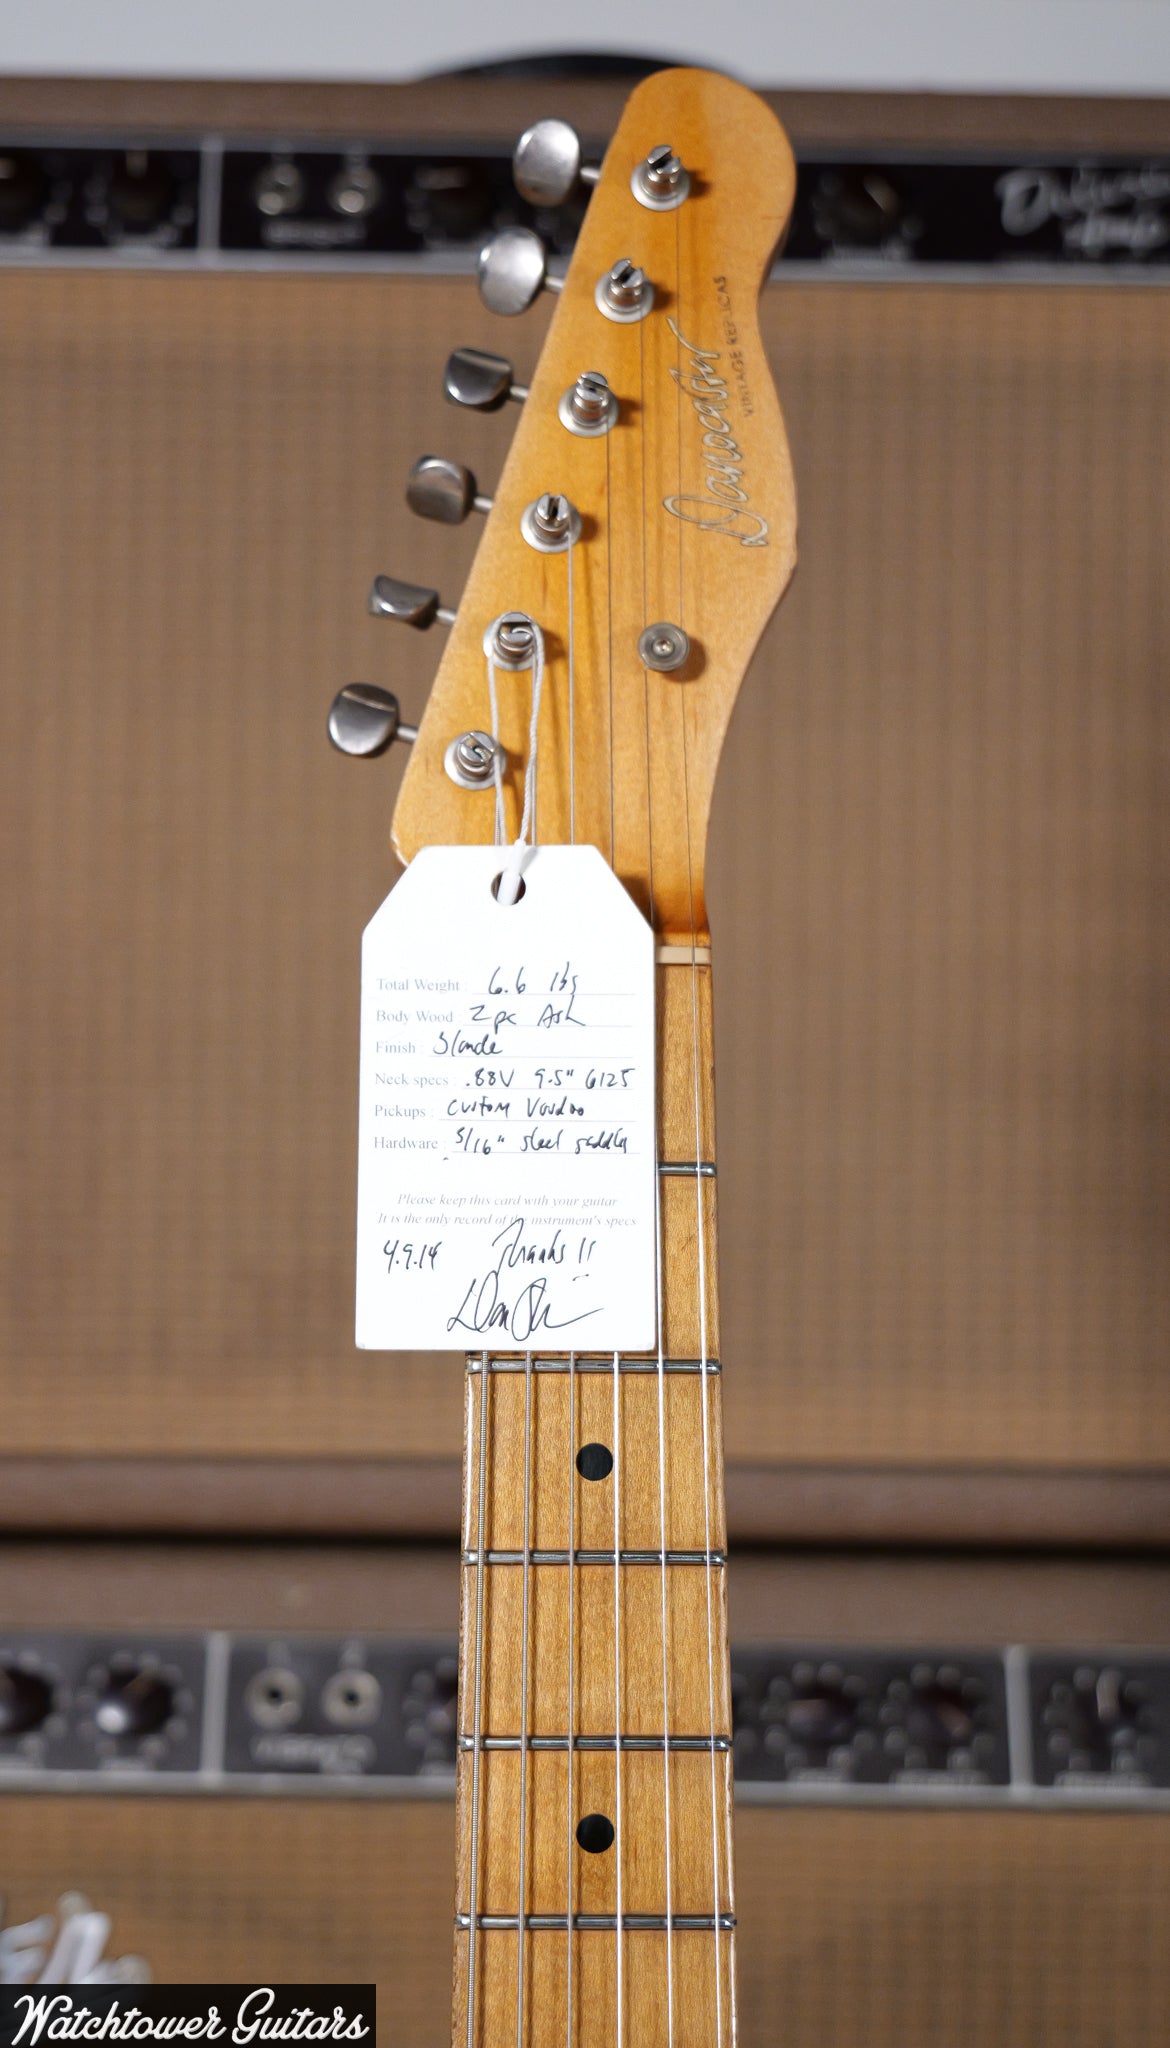 Danocaster
VINTAGE REPLICAS
Total Weight: 6.6 lbs
Body Wood: 2pc Ash
Finish: Blonde
Neck specs: .88V 9.5" 6125
Pickups: Custom Voodoo
Hardware: 5/16" steel saddles
Please keep this card with your guitar
It is the only record of the instrument's specs
4.9.14 Thanks!!
Watchtower Guitars